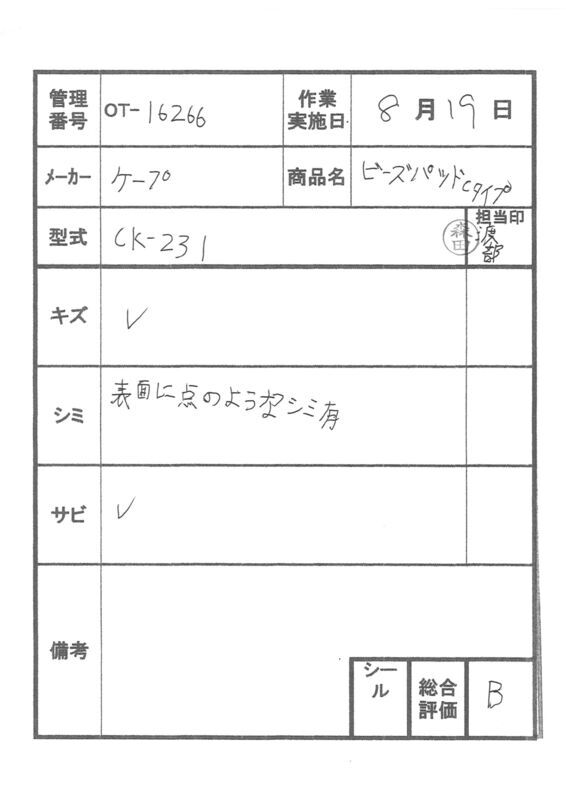 管理番号 OT-16266 作業実施日 8月19日
メーカー ケープ 商品名 ビーズパッドCタイプ
型式 CK-231 森田 担当印 渡部
キズ ✓
シミ 表面に点のようなシミ有
サビ ✓
備考
シール 総合評価 B